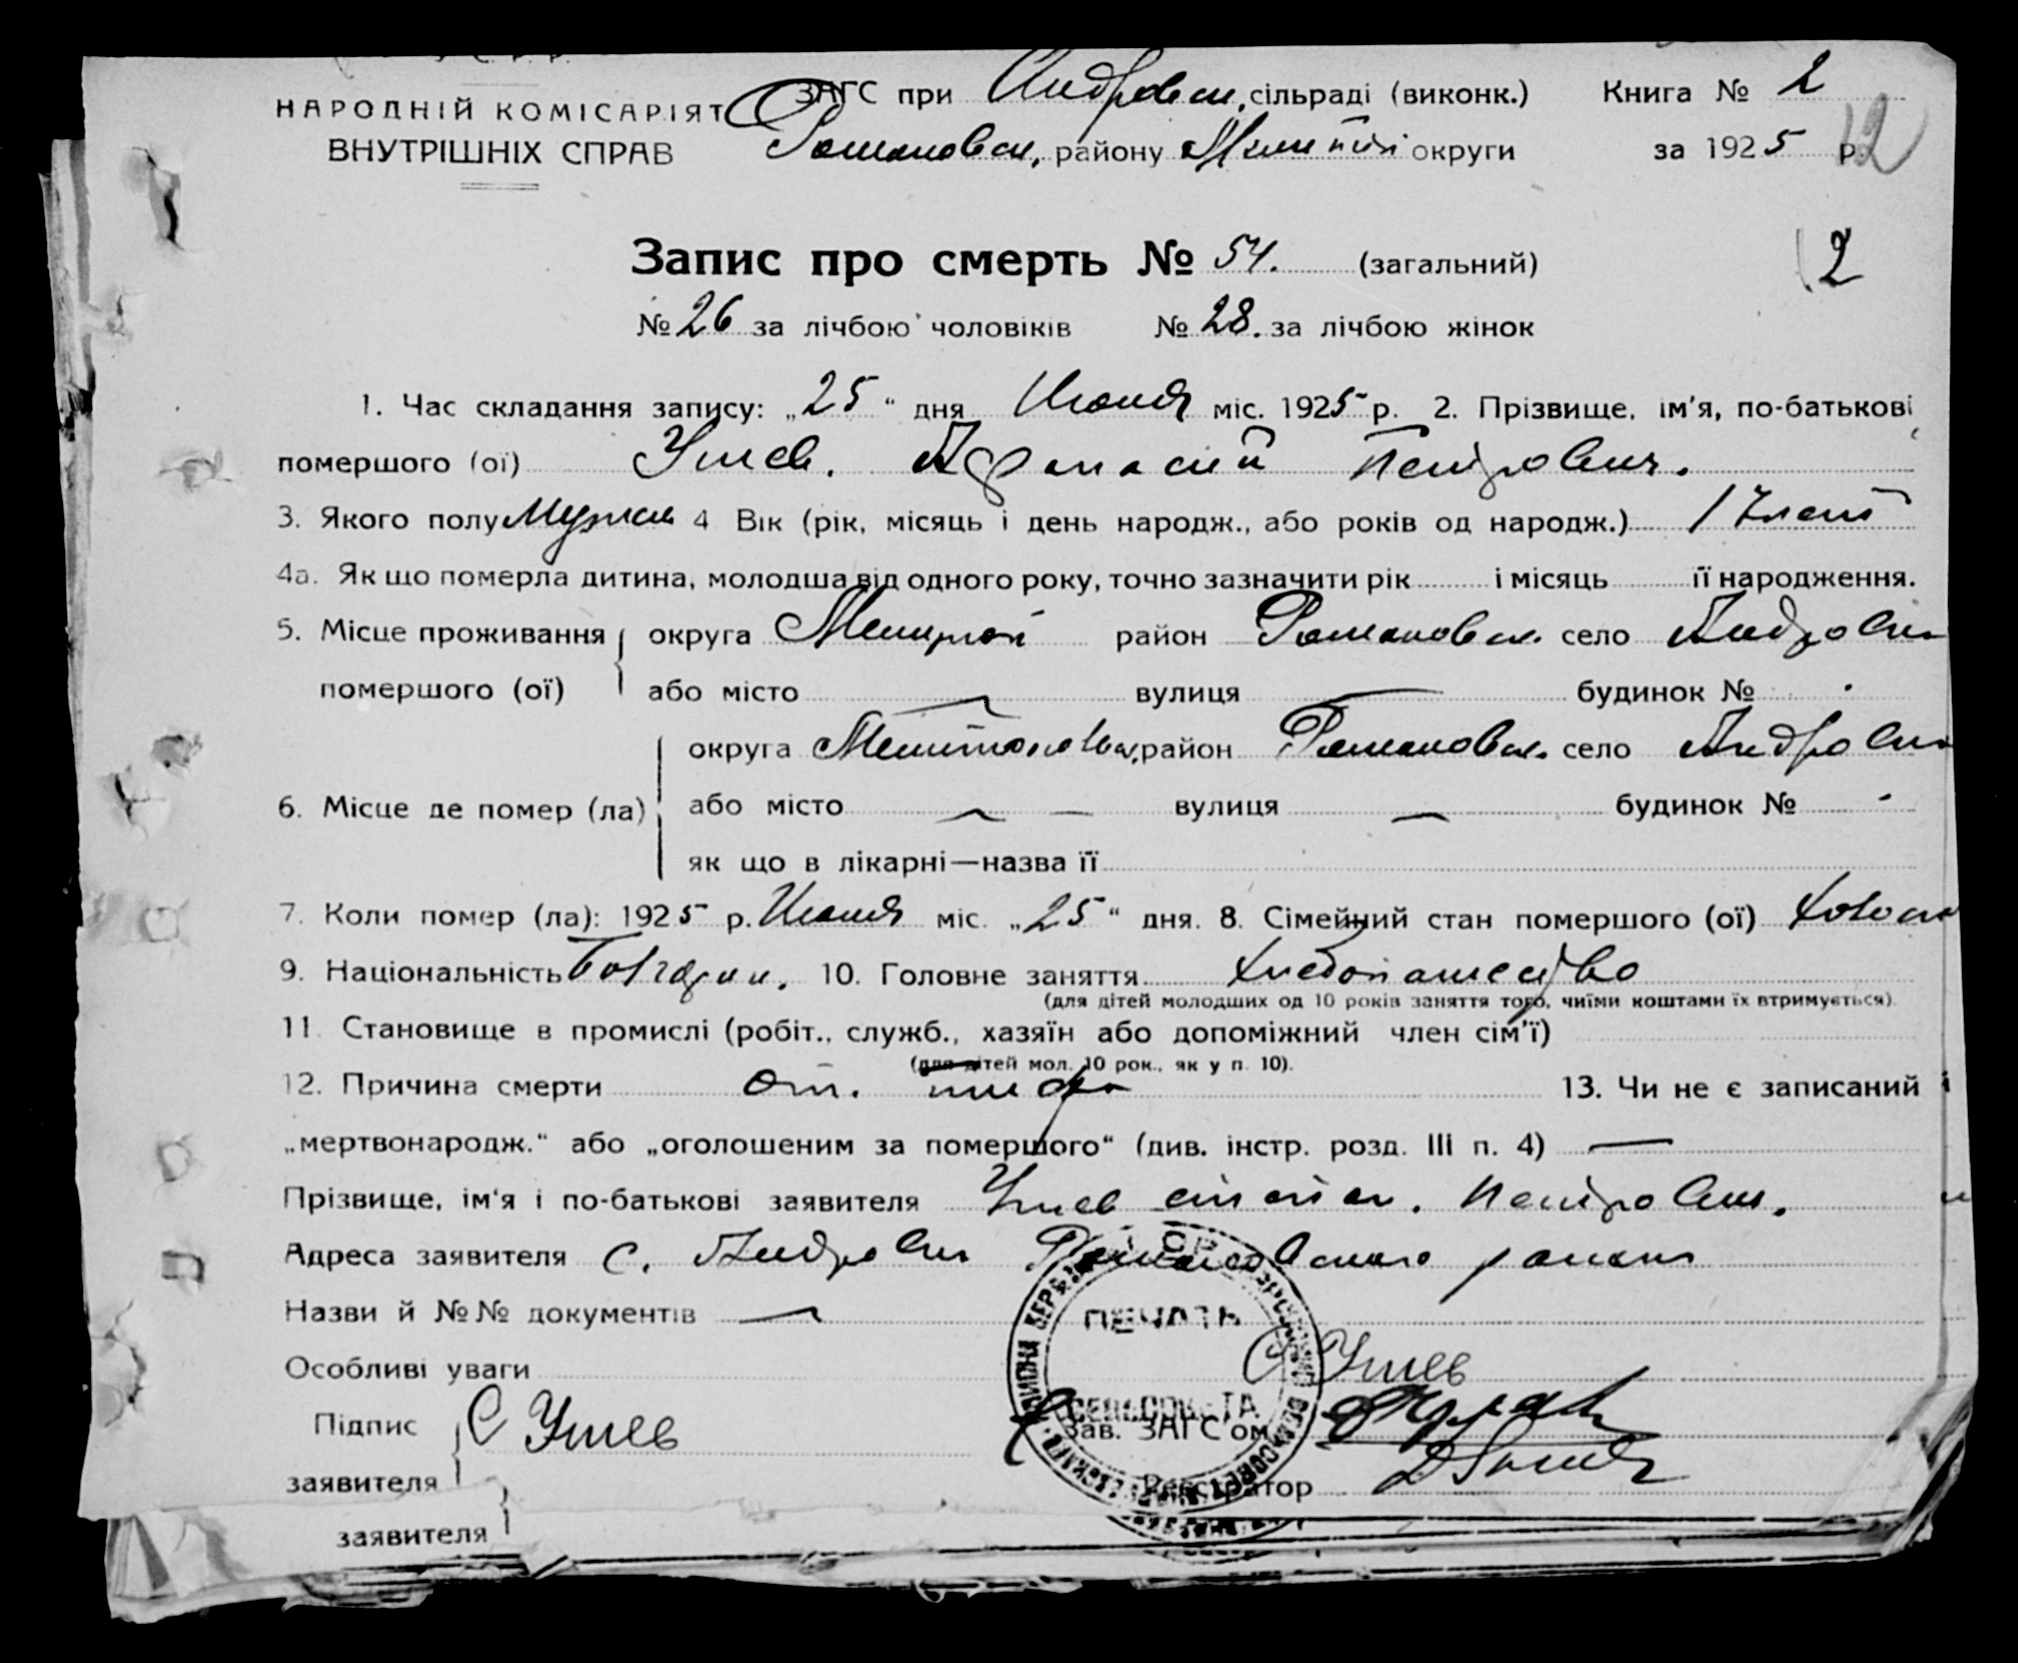 У. С. Р. Р.
НАРОДНІЙ КОМІСАРІЯТ
ВНУТРІШНІХ СПРАВ
ЗАГС при Андровск. сільраді (виконк.) Книга № 2
Романовск. району округи за 1925 р. 12
Запис про смерть № 54. (загальний) 2
№ 26 за лічбою чоловіків № 28. за лічбою жінок
1. Час складання запису: „25“ дня Июня міс. 1925 р. 2. Прізвище, ім'я, по-батькові
помершого (ої) Узмев. Афанасий Петрович.
3. Якого полу Мужск 4 Вік (рік, місяць і день народж., або років од народж.) 17 лет
4а. Як що померла дитина, молодша від одного року, точно зазначити рік і місяць її народження.
5. Місце проживання округа район Романовск. село Андровка
помершого (ої) або місто — вулиця — будинок №
округа район Романовск. село Андровка
6. Місце де помер (ла) або місто — вулиця — будинок №
як що в лікарні—назва її
7. Коли помер (ла): 1925 р. Июня міс. „25“ дня. 8. Сімейний стан помершого (ої) холост
9. Національність Болгарин. 10. Головне заняття хлебопашество
(для дітей молодших од 10 років заняття того, чиїми коштами їх втримується).
11. Становище в промислі (робіт., служб., хазяїн або допоміжний член сім'ї)
(для дітей мол. 10 рок., як у п. 10).
12. Причина смерти от. тифа 13. Чи не є записаний і
„мертвонародж.“ або „оголошеним за помершого“ (див. інстр. розд. III п. 4) —
Прізвище, ім'я і по-батькові заявителя Петрович.
Адреса заявителя с. Андровка Романовского района
Назви й №№ документів —
Особливі уваги
ПЕЧАТЬ
СЕЛЬСОВЕТА
Підпис С
заявителя
Зав. ЗАГС'ом
Реєстратор
заявителя